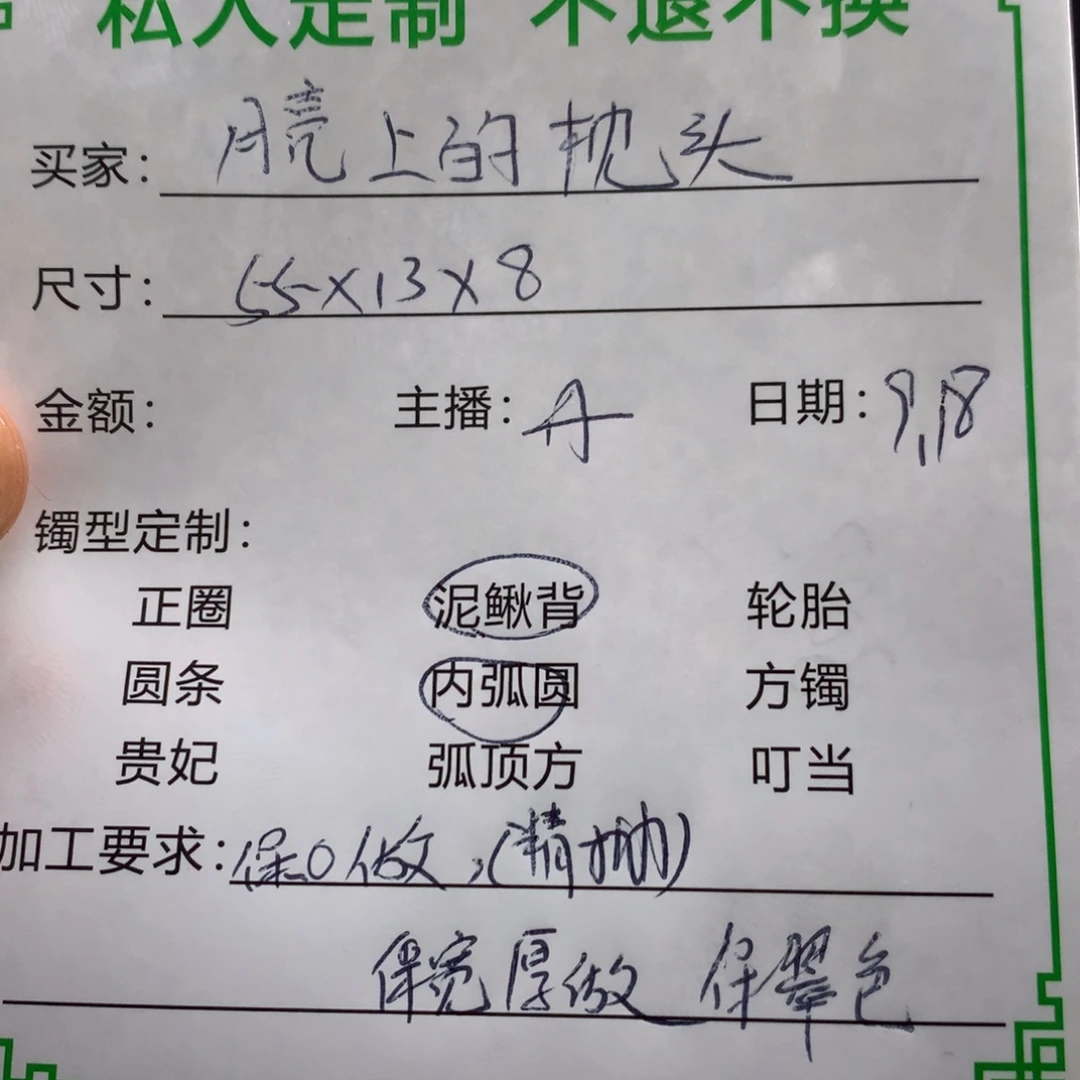 私人定制 不退不换
买家：月亮上的枕头
尺寸：55×13×8
金额： 主播：A 日期：9.18
镯型定制：
正圈 泥鳅背 轮胎
圆条 内弧圆 方镯
贵妃 弧顶方 叮当
加工要求：保O做，(精抛)
保宽厚做 保翠色